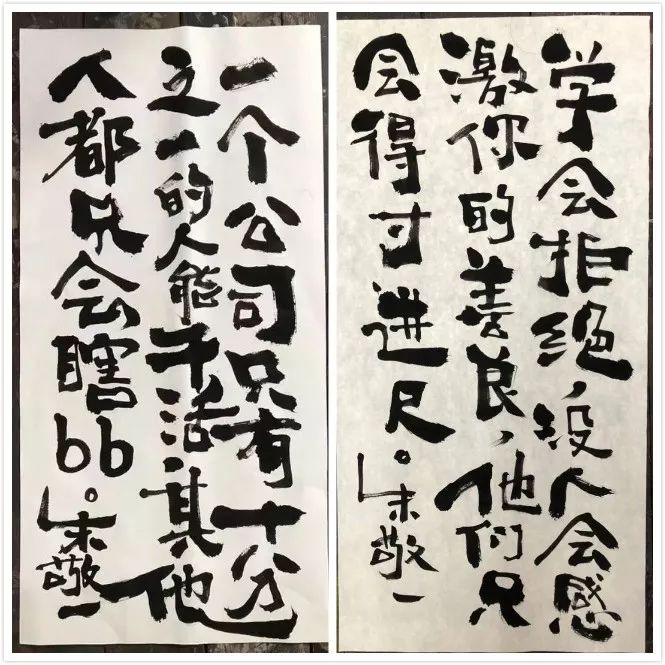 一个公司只有十分
之一的人能干活，其他
人都只会瞎bb。朱敬一
学会拒绝，没人会感
激你的善良，他们只
会得寸进尺。朱敬一